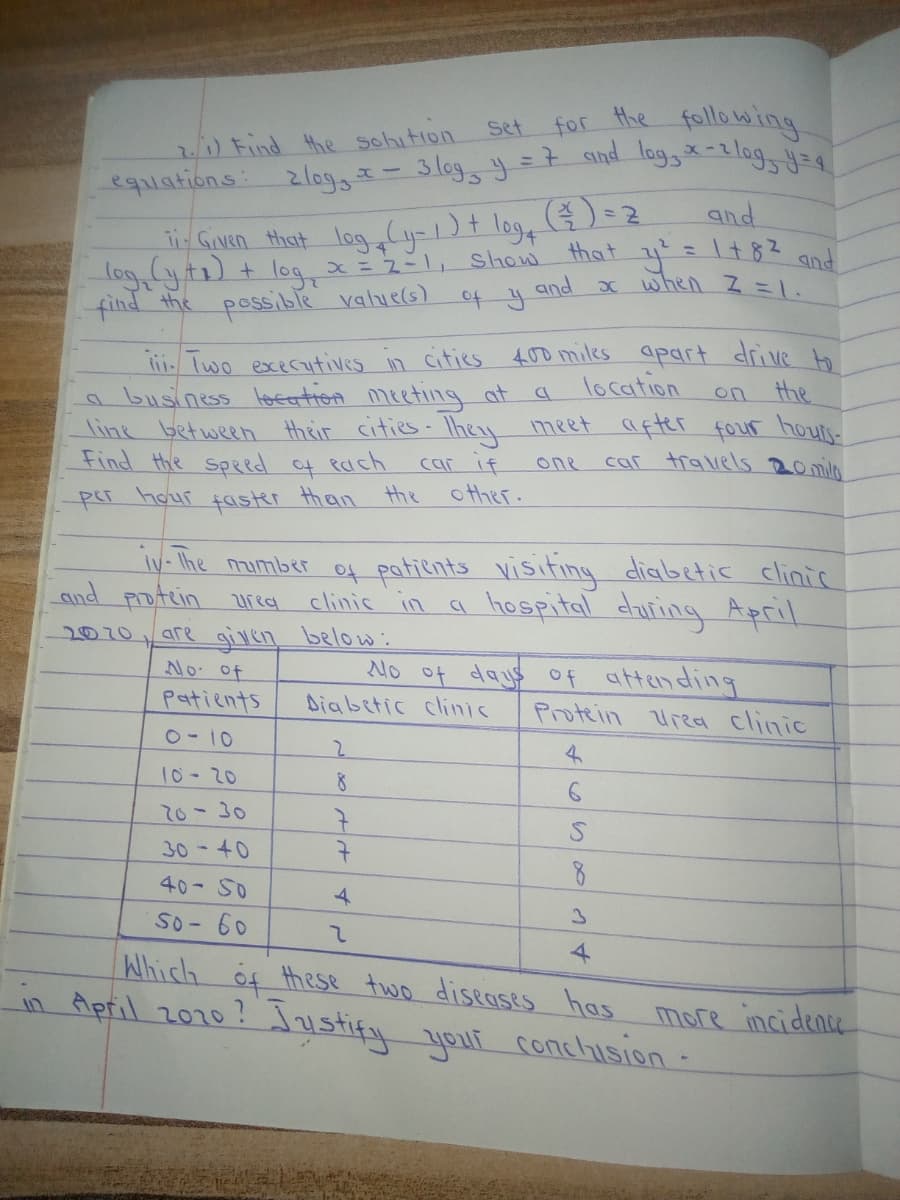 2. i) Find the solution set for the following
equations: 2log₃ x - 3log₃ y = 7 and log₃ x - 2log₃ y = 4
ii- Given that log₄(y-1) + log₄(x/2) = z and
log₂(y+1) + log₂ x = z-1, show that y² = 1 + 8^z and
find the possible value(s) of y and x when z = 1.
iii. Two executives in cities 400 miles apart drive to
a business location meeting at a location on the
line between their cities. They meet after four hours.
Find the speed of each car if one car travels 20 miles
per hour faster than the other.
iv- The number of patients visiting diabetic clinic
and protein urea clinic in a hospital during April
2020, are given below:
No. of No of days of attending
patients Diabetic clinic Protein Urea clinic
0 - 10 2 4
10 - 20 8 6
20 - 30 7 5
30 - 40 7 8
40 - 50 4 3
50 - 60 2 4
Which of these two diseases has more incidence
in April 2020? Justify your conclusion.